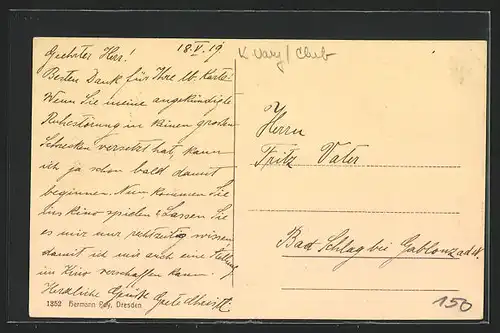 18.V.19.
Geehrter Herr!
Besten Dank für Ihre lb. Karte!
Wenn Sie meine angekündigte
Ruhestörung in keinen großen
Schrecken versetzt hat, kann
ich ja schon bald damit
beginnen. Nun kommen Sie
ins Kino spielen? Lassen Sie
es mir nur rechtzeitig wissen,
damit ich mir auch eine Stellung
im Kino verschaffen kann.
Herzliche Grüße Grete
1352 Hermann Poy, Dresden
Herrn
Fritz Vater
Bad Schlag bei Gablonz a.d.N.
150